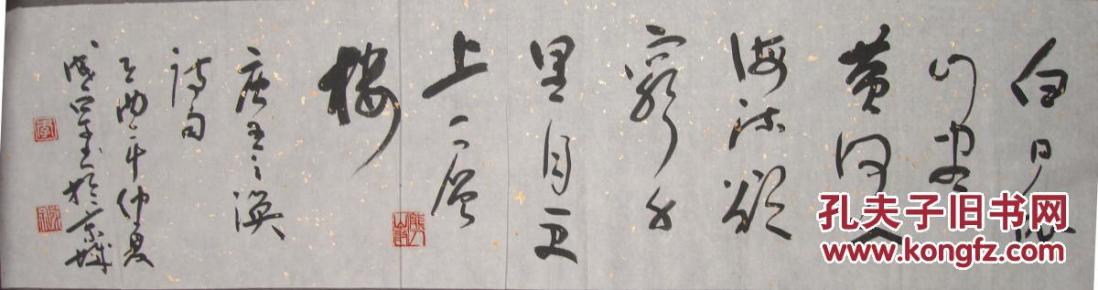 白日依
山盡
黄河入
海流欲
窮千
里目更
上一層
樓
唐王之涣
詩句
乙酉年仲夏
書於京城
孔夫子旧书网
www.kongfz.com